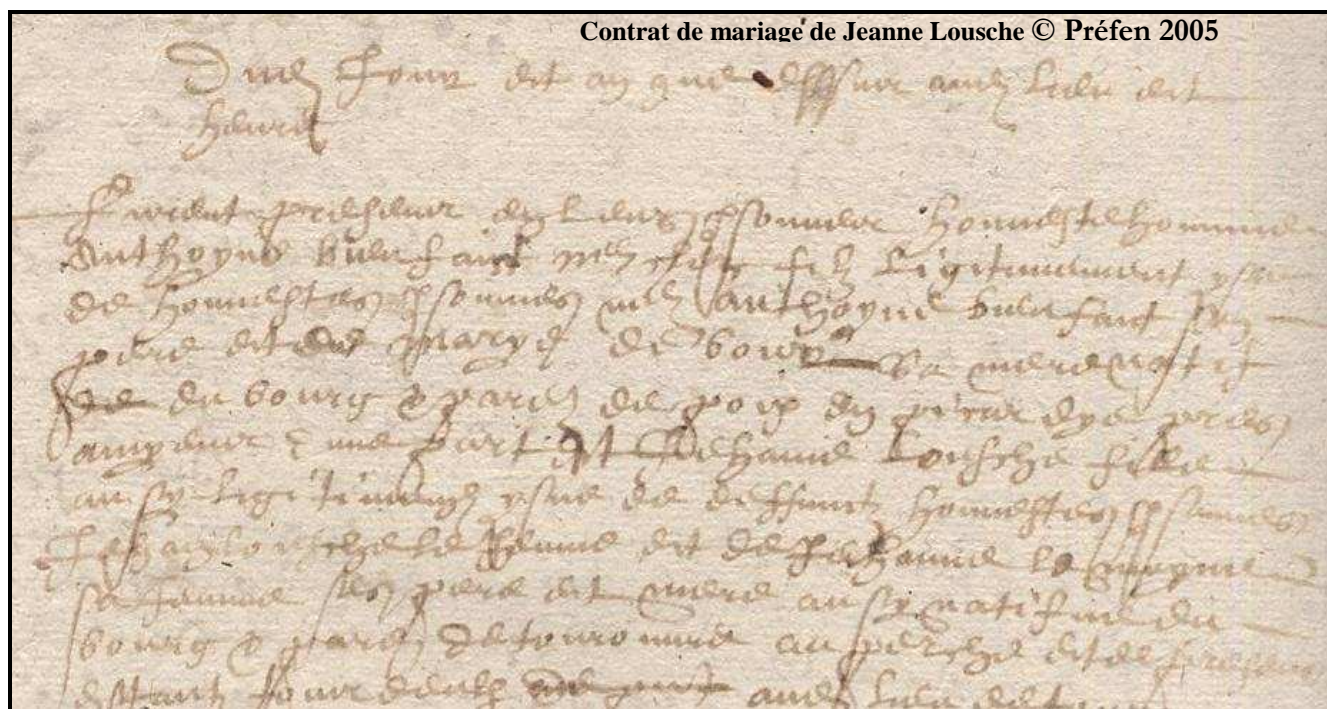 Contrat de mariage de Jeanne Lousche © Préfen 2005
Dud Jour et an que dessus aud lieu et
heure
Furent presens en leurs psonnes honneste homme
Anthoyne bienfaict filz legitimement yssu
de honnestes psonnes me anthoyne bienfaict son
pere et de marye de sa mere natif
de du bourg & paroi de poix en picardye pres
amyens d'une part et Jehanne Lousche fille
aussy legitimemt yssue de deffunctz honnestes psonnes
Jehan lousche le Jeune et de Jehanne le moyne
sa femme ses pere et mere aussy natifve du
bourg & paroi de tourouvre au perche et de present
estant aud lieu de